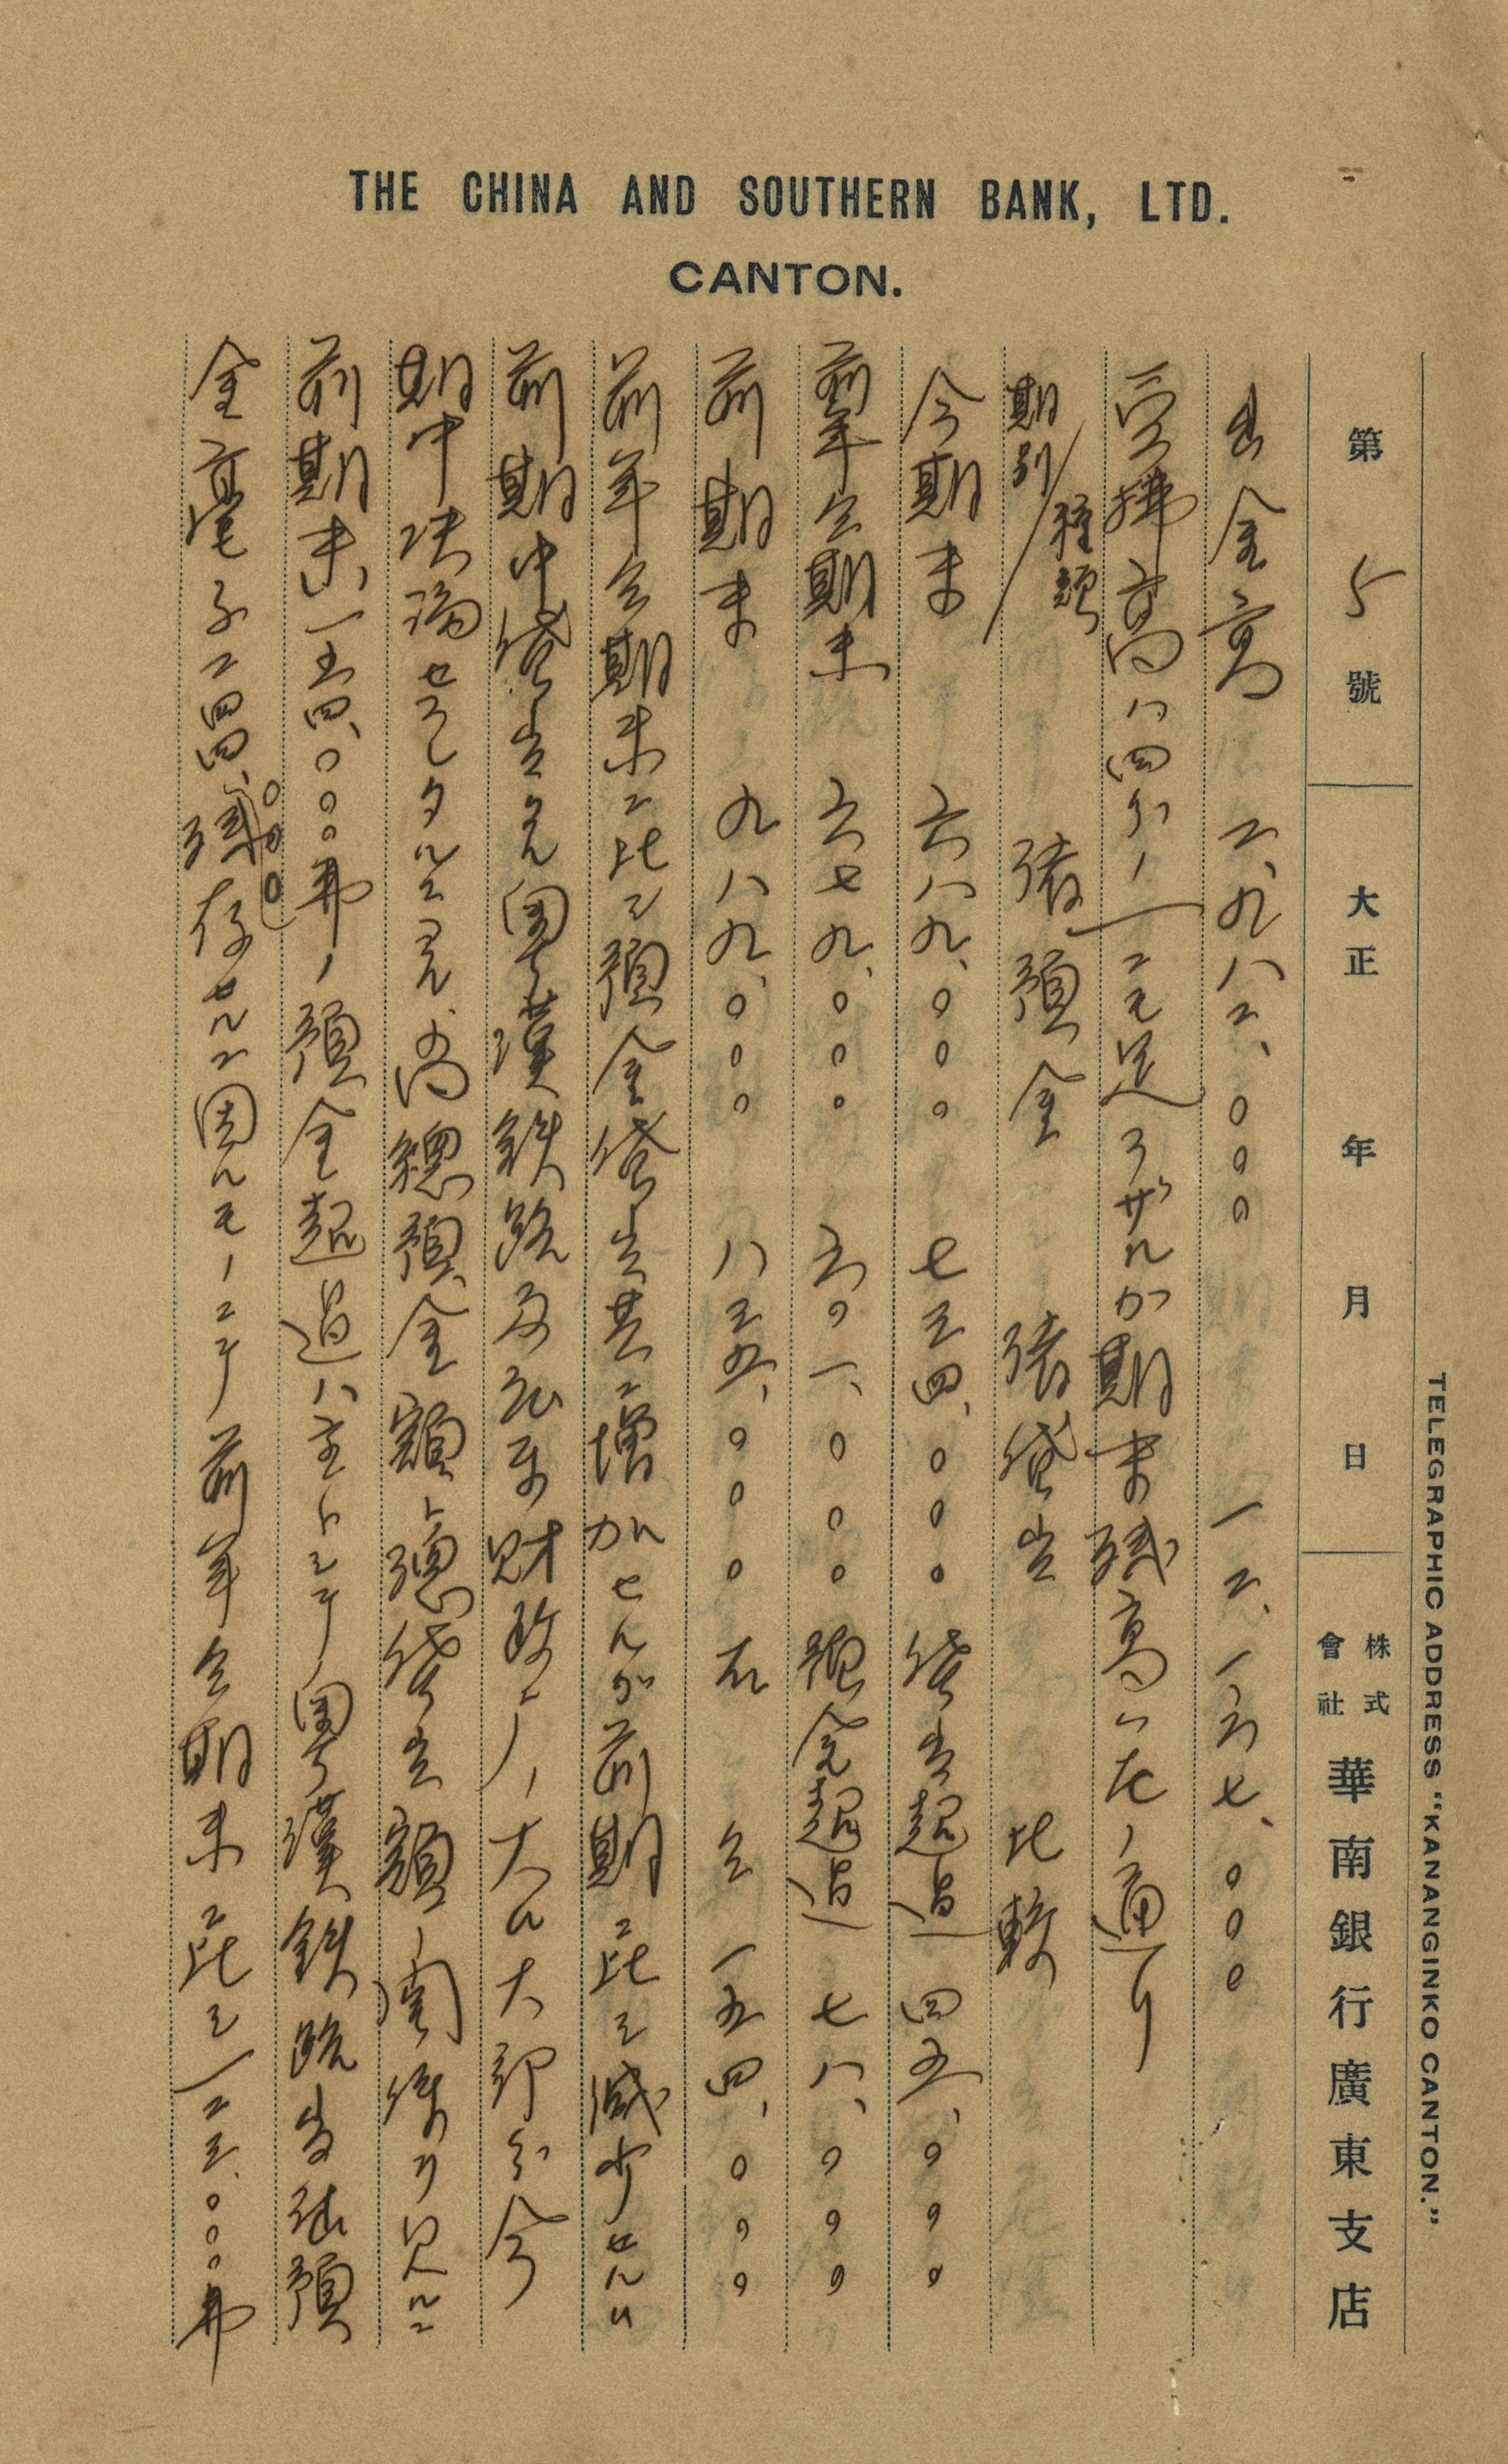 THE CHINA AND SOUTHERN BANK, LTD.
CANTON.
TELEGRAPHIC ADDRESS "KANANGINKO CANTON."
第 5 號 大正 年 月 日 株式會社 華南銀行廣東支店
出金高 二、九八二、〇〇〇 一二、一六七、〇〇〇
受拂高ハ四分ノ一ニモ足ラザルカ期末残高ハ左ノ通リ
期別/種類 諸預金 諸貸出 比較
今期末 六八九、〇〇〇 七三四、〇〇〇 貸出超過 四五、〇〇〇
前年仝期末 六七九、〇〇〇 六〇一、〇〇〇 預金超過 七八、〇〇〇
前期末 九八九、〇〇〇 八三五、〇〇〇 右仝 一五四、〇〇〇
前年仝期末ニ比シ預金貸出共ニ増加セルガ前期ニ比シ減少セルハ
前期中貸出タル粤漢鉄路及広東財政庁ノ大口大部分今
期中決済セラレタルニヨル、尚總預金額ト總貸出額ノ関係ヨリ見ルニ
前期末、一五四、〇〇〇弗ノ預金超過ハ主トシテ粤漢鉄路当座預
金毫子二四四、〇〇〇残存セルニ因ルモノニテ前年仝期末ニ比シ一二三、〇〇〇弗